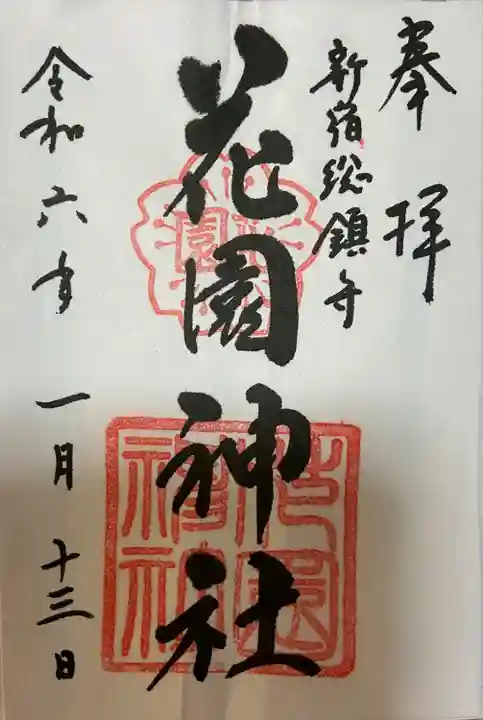 奉拝
新宿総鎮守
花園神社
花園
花園神社
令和六年
一月十三日